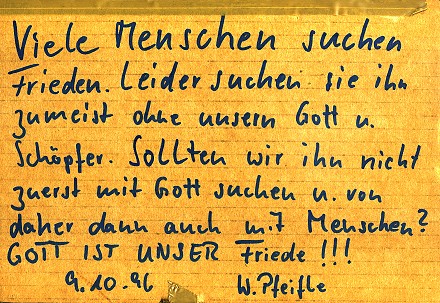 Viele Menschen suchen
Frieden. Leider suchen sie ihn
zumeist ohne unsern Gott u.
Schöpfer. Sollten wir ihn nicht
zuerst mit Gott suchen u. von
daher dann auch mit Menschen?
GOTT IST UNSER Friede!!!
9.10.96 W. Pfeifle